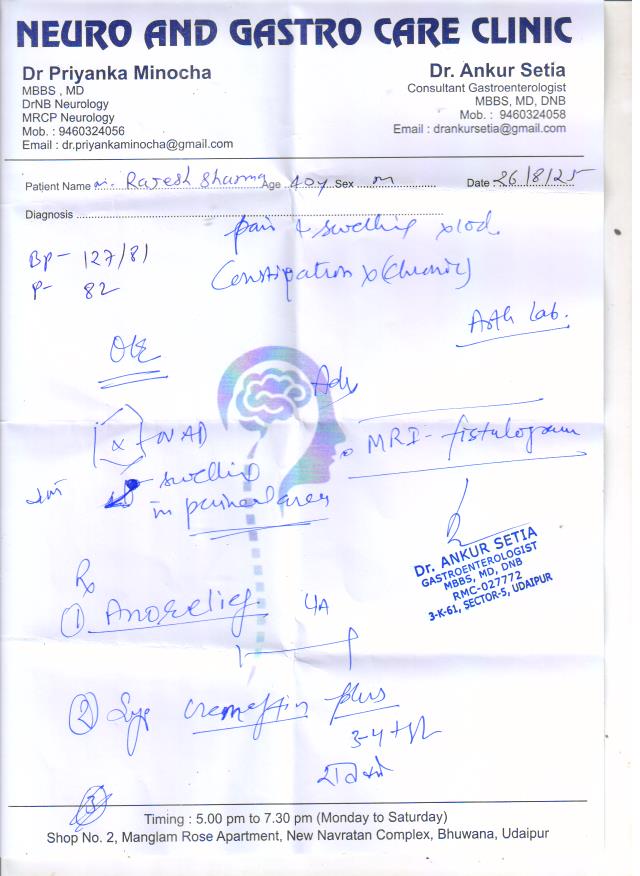 NEURO AND GASTRO CARE CLINIC
Dr Priyanka Minocha
MBBS , MD
DrNB Neurology
MRCP Neurology
Mob. : 9460324056
Email : dr.priyankaminocha@gmail.com
Dr. Ankur Setia
Consultant Gastroenterologist
MBBS, MD, DNB
Mob. : 9460324058
Email : drankursetia@gmail.com
Patient Name Mr. Rajesh Sharma Age 40y Sex M Date : 26/8/25
Diagnosis
pain + swelling x 10d
BP - 127/81
Constipation x (chronic)
P- 82
Asth Lab.
O/E
Adv
NAD
MRI - fistulogram
swelling
in perineal area
Dr. ANKUR SETIA
GASTROENTEROLOGIST
MBBS, MD, DNB
RMC-027772
3-K-61, SECTOR-5, UDAIPUR
Rx
① Anorelief
② Syp cremaffin plus
3-4 tsf
③
Timing : 5.00 pm to 7.30 pm (Monday to Saturday)
Shop No. 2, Manglam Rose Apartment, New Navratan Complex, Bhuwana, Udaipur